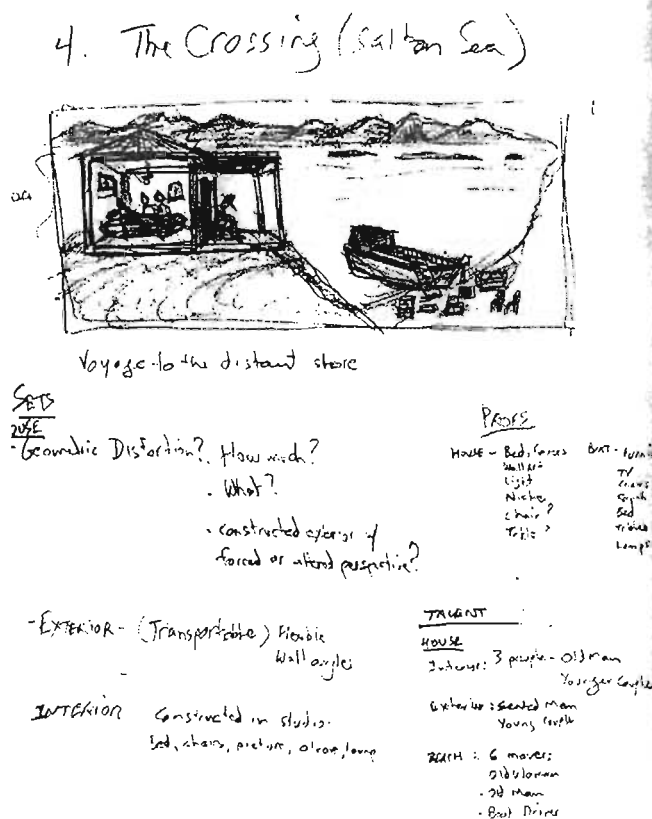 4. The Crossing (Salton Sea)
Voyage to the distant shore
SETS
- Geometric Distortion? How much?
- What?
- constructed exterior w/
forced or altered perspective?
- EXTERIOR - (Transportable) Flexible
Wall angles
INTERIOR Constructed in studio.
Bed, chairs, picture, alcove, lamp
PROPS
HOUSE - Bed, Covers
Wall Art
Light
Niches
Chair?
Table?
BOAT - Furni
TV
Bed
Lamps
TALENT
HOUSE
Interior: 3 people - Old Man
Younger Couple
Exterior: Seated Man
Young Couple
BEACH: 6 movers;
Old Woman
- Old Man
- Boat Driver